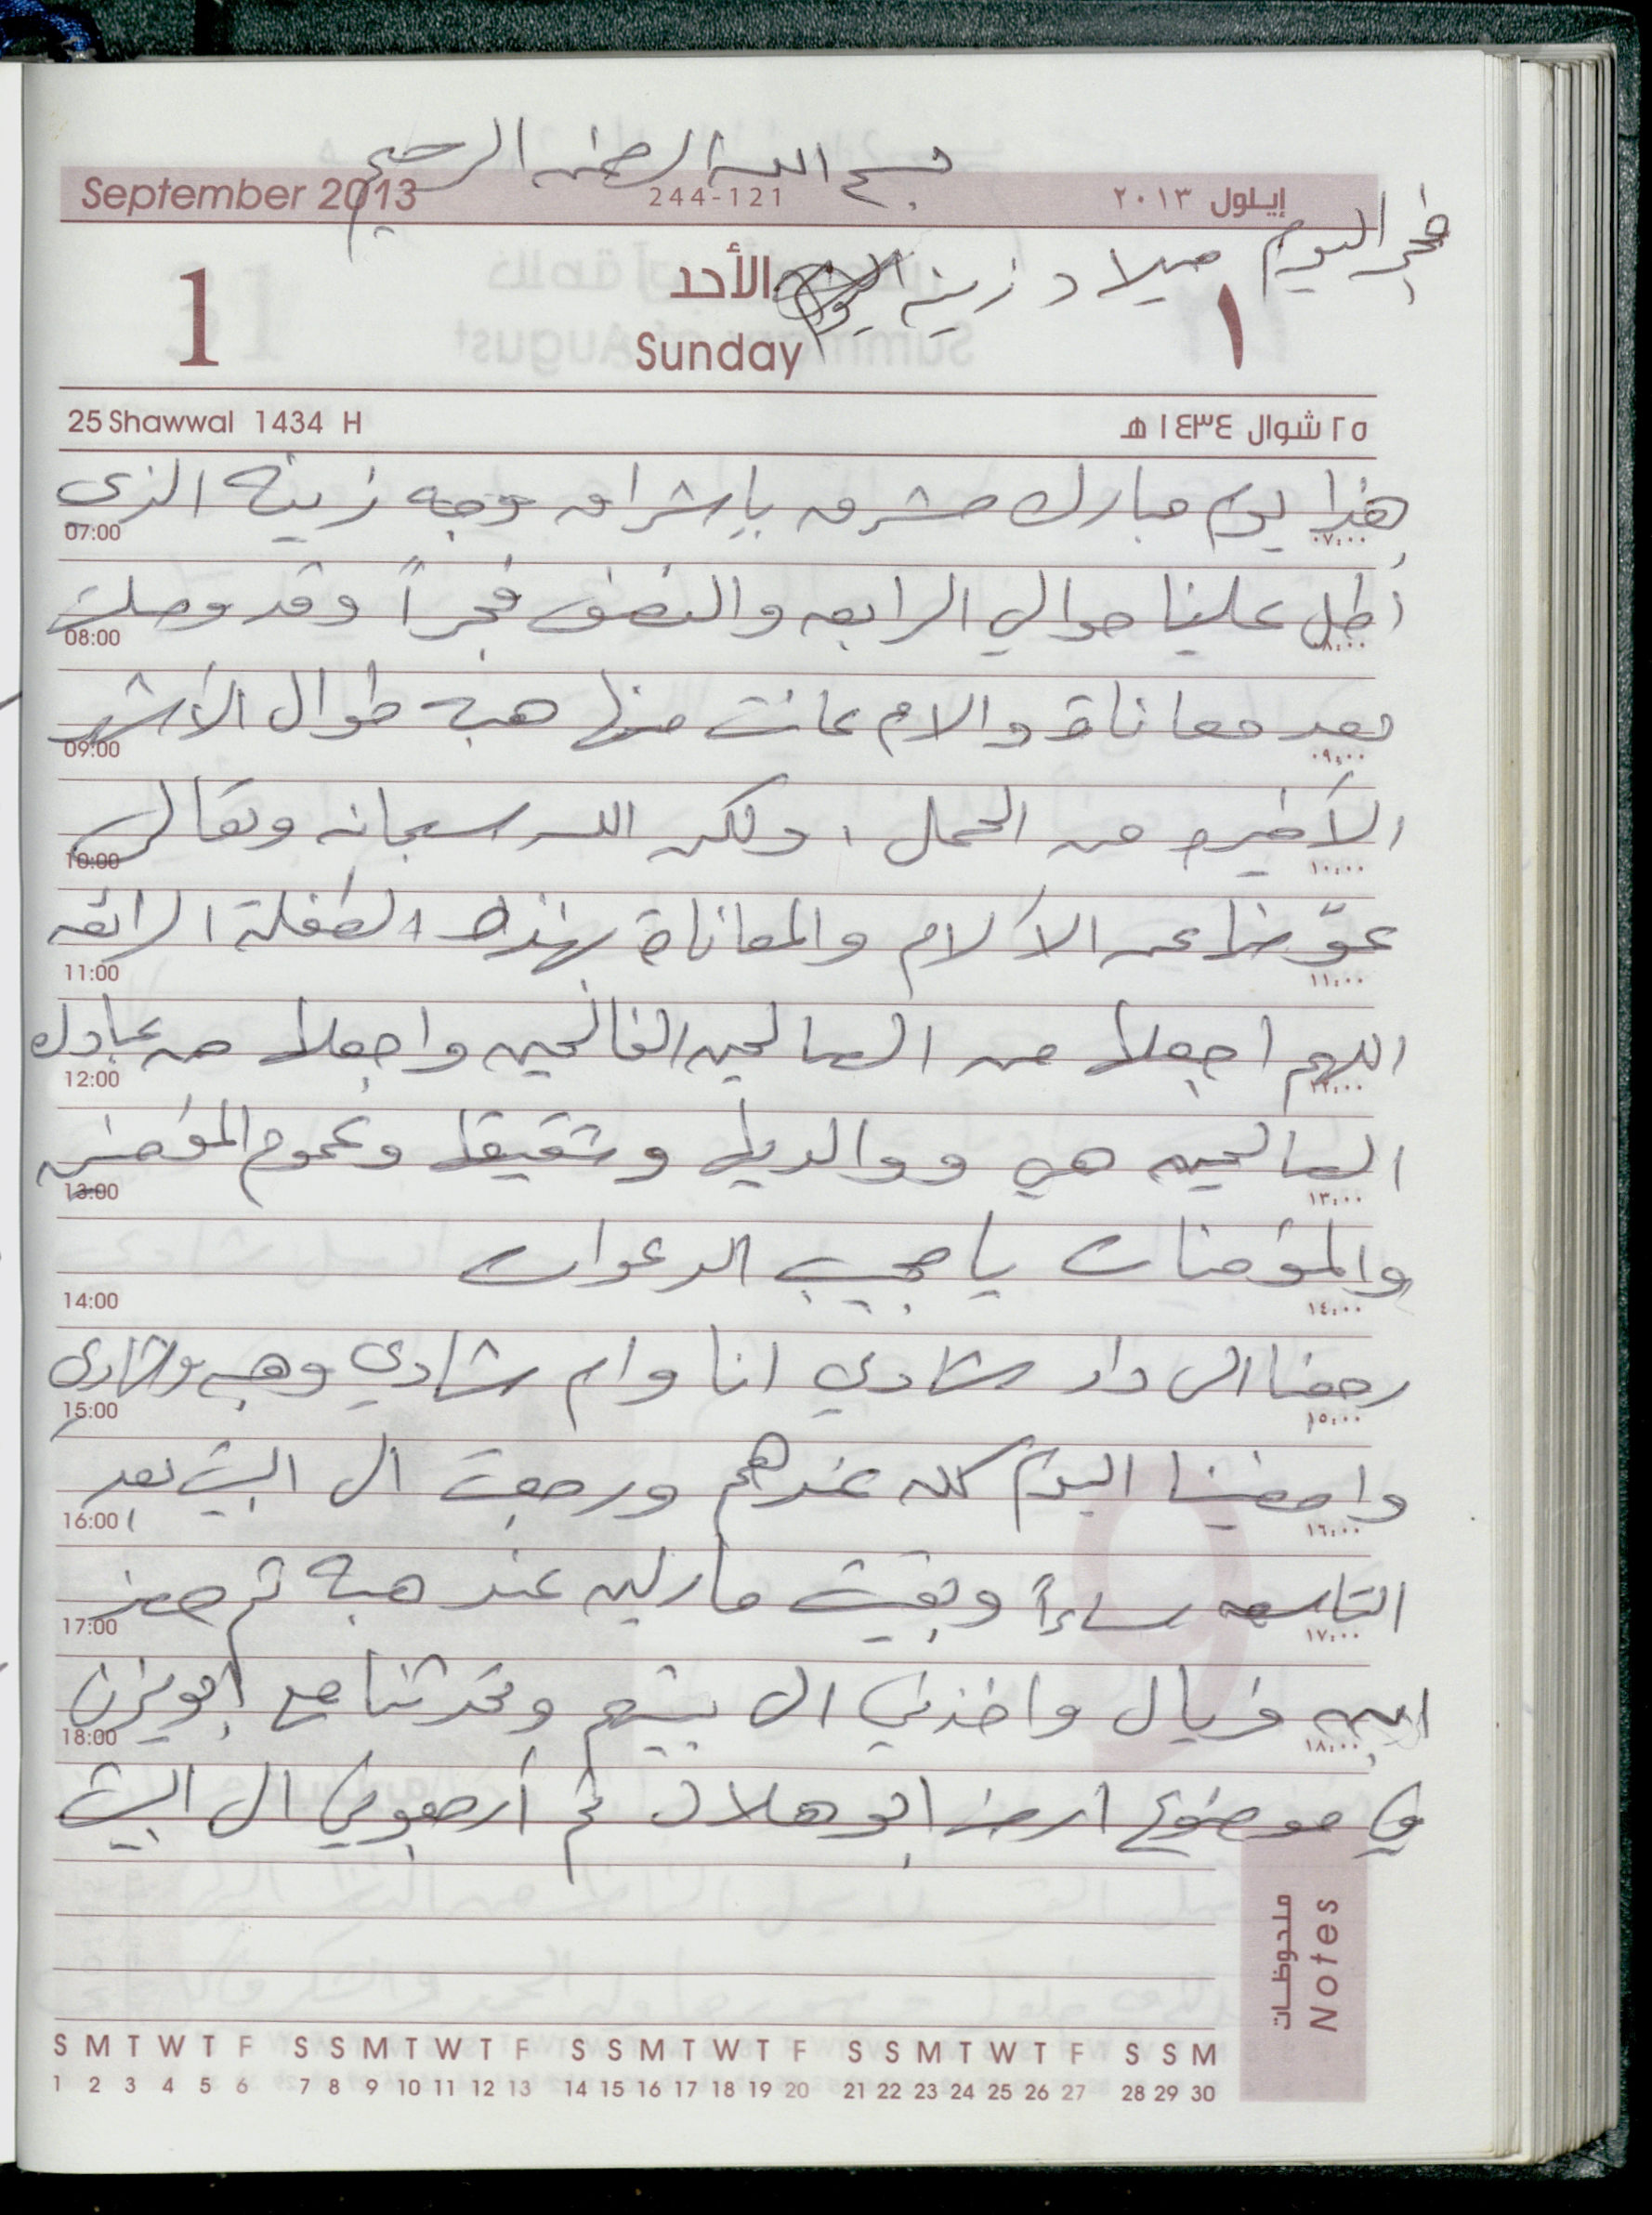 بسم الله الرحمن الرحيم
September 2013 244-121 إيـلول ٢٠١٣
فجر اليوم ميلاد زينه
1 الأحد ١
Sunday
25 Shawwal 1434 H ٢٥ شوال ١٤٣٤ هـ
هذا يوم مبارك مشرق باشراق وجه زينة الذي
07:00 ٠٧:٠٠
أطل علينا حوالي الرابعه والنصف فجراً وقد وصلت
08:00 ٠٨:٠٠
بعد معاناة والام عانت منها هبه طوال الأشهر
09:00 ٠٩:٠٠
الأخيره من الحمل ، ولكن الله سبحانه وتعالى
10:00 ١٠:٠٠
عوّضنا عن الآلام والمعاناة بهذه الطفلة الرائعه
11:00 ١١:٠٠
اللهم اجعلها من الصالحين الفالحين واجعلها من عبادك
12:00 ١٢:٠٠
الصالحين هي ووالديها وشقيقها وعموم المؤمنين
13:00 ١٣:٠٠
والمؤمنات يا مجيب الدعوات
14:00 ١٤:٠٠
رجعنا الى دار شادي انا وام شادي وهبه وشادي
15:00 ١٥:٠٠
وامضينا اليوم كله عندهم ورجعت الى البيت بعد
16:00 ١٦:٠٠
التاسعه مساءاً وبقيت مارلين عند هبة ثم حضر
17:00 ١٧:٠٠
ابن فريال واخذني الى بيتهم وتحدثنا مع ابو يزن
18:00 ١٨:٠٠
في موضوع ارض ابو هلال ثم أرجعوني الى البيت
ملحوظات
Notes
S M T W T F S S M T W T F S S M T W T F S S M T W T F S S M
1 2 3 4 5 6 7 8 9 10 11 12 13 14 15 16 17 18 19 20 21 22 23 24 25 26 27 28 29 30